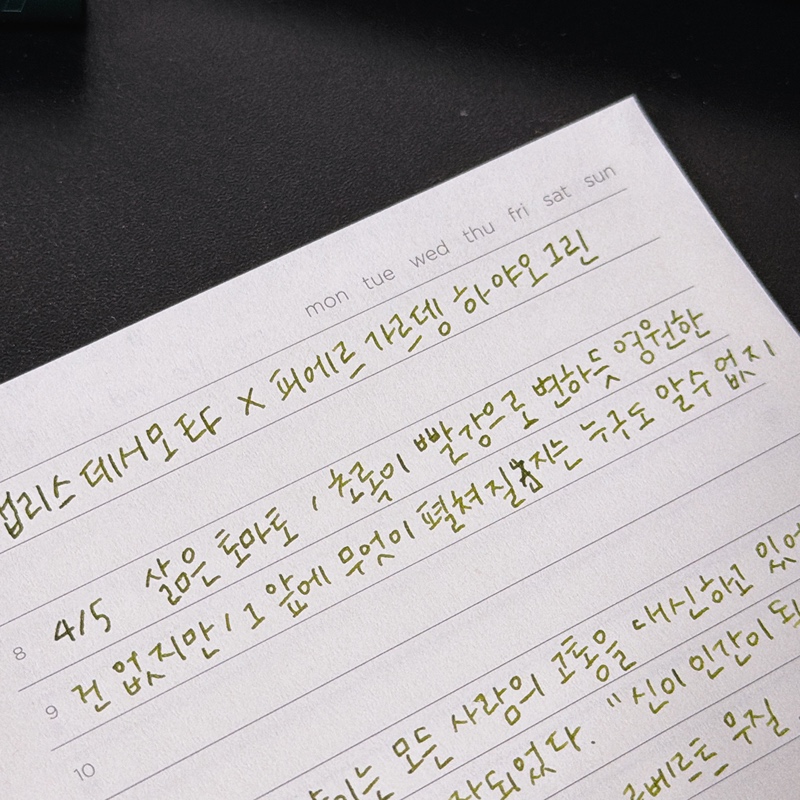 mon tue wed thu fri sat sun
컵리스 데시모 타 x 피에르 가르뎅 하야오 그린
8 4/5 삶은 토마토, 초록이 빨강으로 변하듯 영원한
9 건 없지만, 그 앞에 무엇이 펼쳐질지는 누구도 알수 없지
10
는 모든 사람의 고통을 대신하고 있어
되었다. "신이 인간이 되
르베르트 무질.